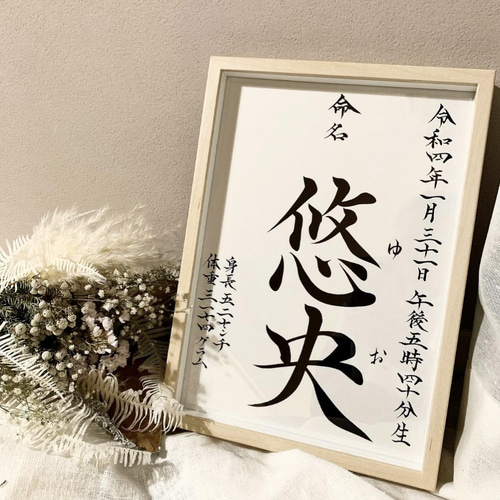 令和四年一月三十一日 午後五時四十分生
命名
悠央
ゆ
お
身長 五二センチ
体重 グラム